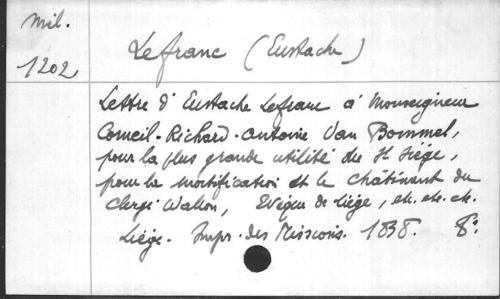 Mil.
1202
Lefranc (Eustache)
Lettre d'Eustache Lefranc à Monseigneur
Corneil-Richard-Antoine Van Bommel,
pour la plus grande utilité du St Siège,
pour la mortification et le châtiment du
Clergé Wallon, Evêque de Liège, etc. etc. etc.
Liège. Impr. des Missions. 1838. 8°.